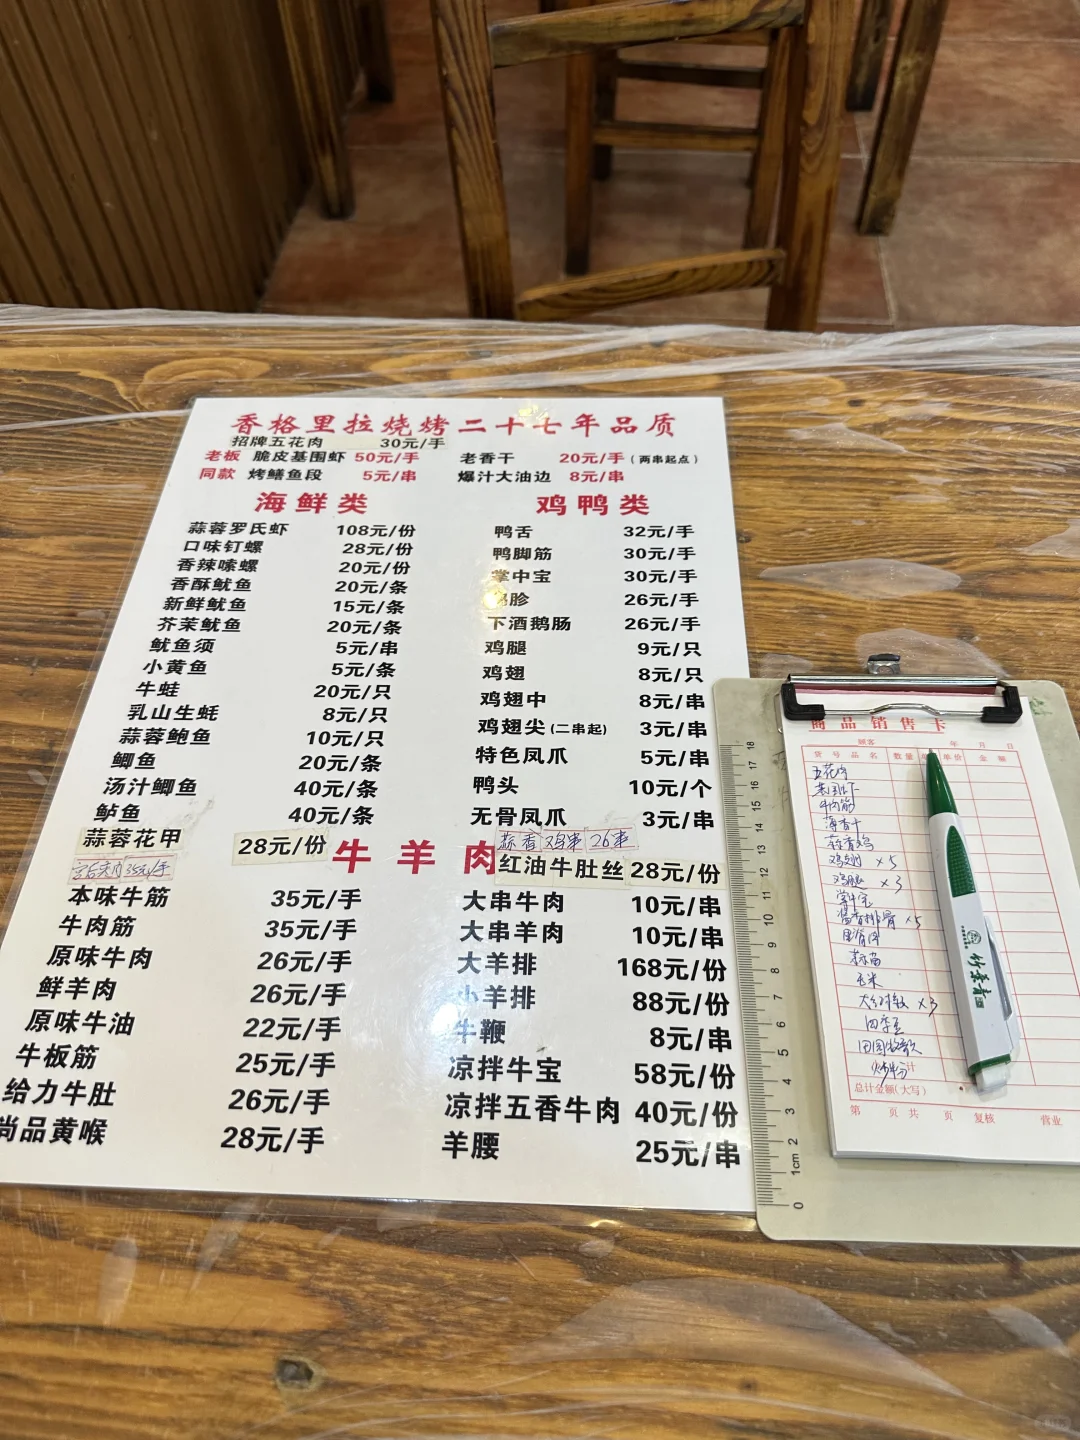 香格里拉烧烤二十七年品质
招牌五花肉 30元/手
老板 脆皮基围虾 50元/手 老香干 20元/手(两串起点)
同款 烤鳝鱼段 5元/串 爆汁大油边 8元/串
海鲜类
蒜蓉罗氏虾 108元/份
口味钉螺 28元/份
香辣嗦螺 20元/份
香酥鱿鱼 20元/条
新鲜鱿鱼 15元/条
芥茉鱿鱼 20元/条
鱿鱼须 5元/串
小黄鱼 5元/条
牛蛙 20元/只
乳山生蚝 8元/只
蒜蓉鲍鱼 10元/只
鲫鱼 20元/条
汤汁鲫鱼 40元/条
鲈鱼 40元/条
蒜蓉花甲 28元/份
鸡鸭类
鸭舌 32元/手
鸭脚筋 30元/手
掌中宝 30元/手
胗 26元/手
下酒鹅肠 26元/手
鸡腿 9元/只
鸡翅 8元/只
鸡翅中 8元/串
鸡翅尖(二串起) 3元/串
特色凤爪 5元/串
鸭头 10元/个
无骨凤爪 3元/串
蒜香鸡串 26串
牛羊肉
35元/手
本味牛筋 35元/手
牛肉筋 35元/手
原味牛肉 26元/手
鲜羊肉 26元/手
原味牛油 22元/手
牛板筋 25元/手
给力牛肚 26元/手
尚品黄喉 28元/手
红油牛肚丝 28元/份
大串牛肉 10元/串
大串羊肉 10元/串
大羊排 168元/份
小羊排 88元/份
牛鞭 8元/串
凉拌牛宝 58元/份
凉拌五香牛肉 40元/份
羊腰 25元/串
商品销售卡
顾客 年 月 日
货号品名 数量 单价 金额
五花肉
牛肉筋
蒜香鸡
鸡翅 ×5
鸡腿 ×3
掌中宝
酱香排骨 ×5
里脊肉
玉米
×3
四季豆
炒粉
计
总计金额(大写)
第 页 共 页 复核 营业
竹叶青
18
17
16
15
14
13
12
11
10
9
8
7
6
5
4
3
2
1cm
0